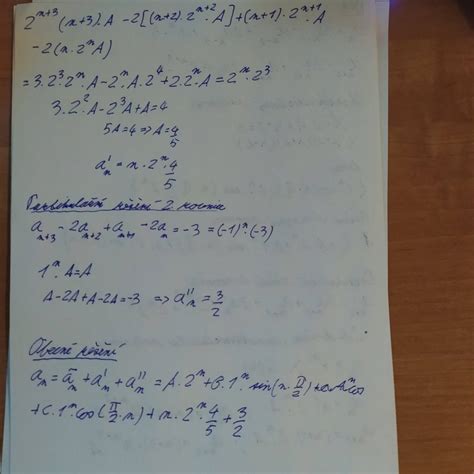 2^{n+3}(n+3).A - 2[(n+2).2^{n+2}.A] + (n+1).2^{n+1}.A
-2(n.2^n A)
= 3.2^3.2^n.A - 2^n.A.2^4 + 2.2^n.A = 2^n.2^3
3.2^2.A - 2^3A + A = 4
5A = 4 => A = 4/5
a'_n = n.2^n.4/5
Partikulární řešení 2. kořena
a_{n+3} - 2a_{n+2} + a_{n+1} - 2a_n = -3 = (-1)^n.(-3)
1^n.A = A
A - 2A + A - 2A = -3 => a''_n = 3/2
Obecné řešení
a_n = ā_n + a'_n + a''_n = A.2^n + B.1^n.sin(n.π/2)
+ C.1^n.cos(π/2.n) + n.2^n.4/5 + 3/2